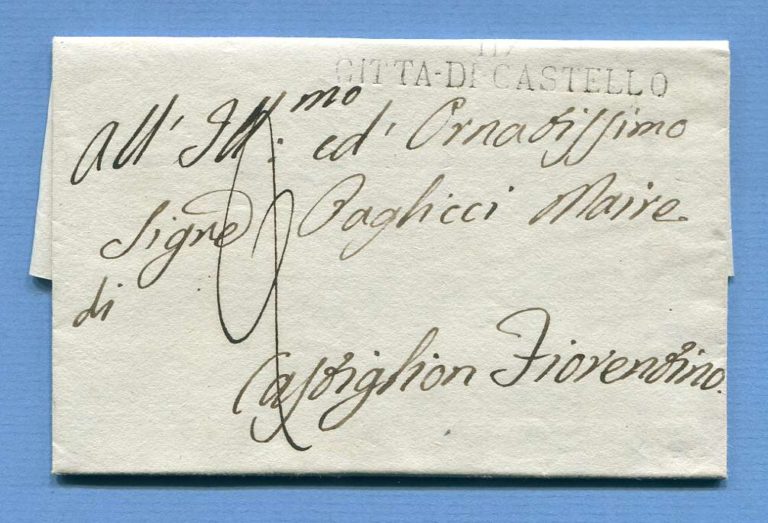 117
CITTA-DI CASTELLO
All' Ill:mo ed' Ornatissimo
Signe Paglicci Maire
di
Castiglion Fiorentino.